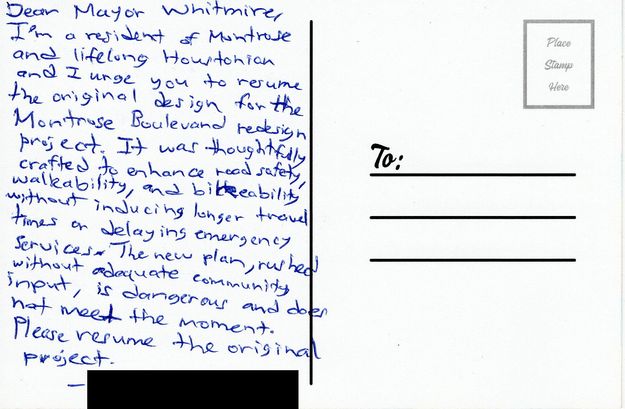 Dear Mayor Whitmire,
I'm a resident of Montrose
and lifelong Houstonian
and I urge you to resume
the original design for the
Montrose Boulevard redesign
project. It was thoughtfully
crafted to enhance road safety,
walkability, and bikeability
without inducing longer travel
times or delaying emergency
services. The new plan, rushed
without adequate community
input, is dangerous and does
not meet the moment.
Please resume the original
project.
—
Place
Stamp
Here
To: